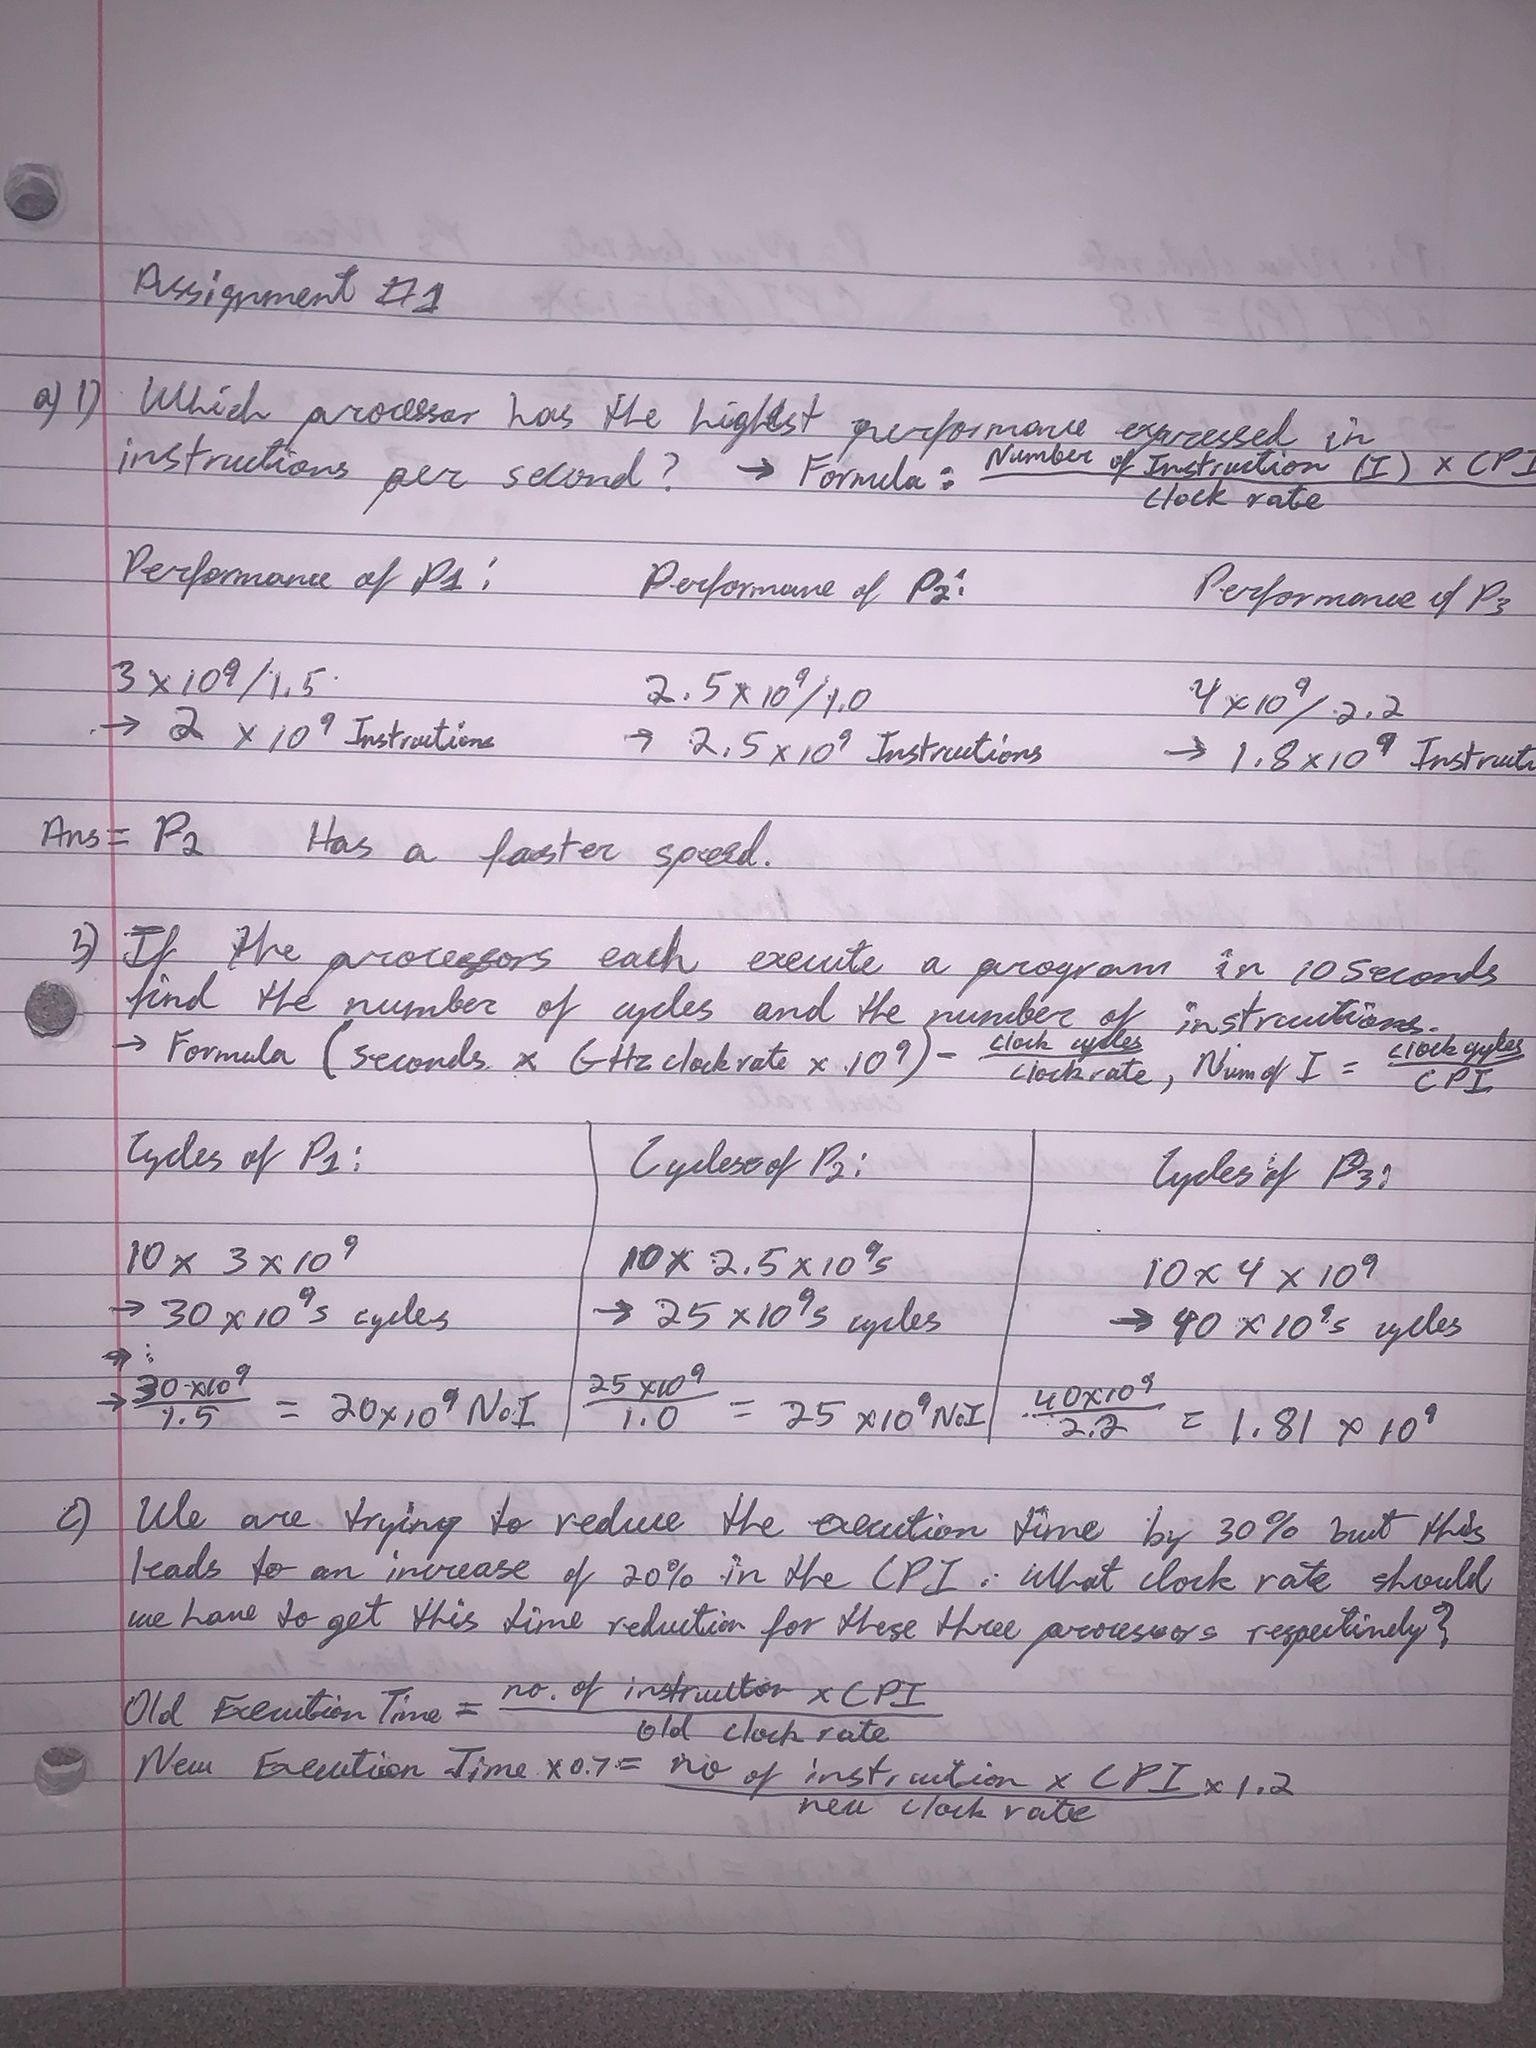 Assignment #1
a) 1) Which processor has the highest performance expressed in
instructions per second? → Formula: Number of Instruction (I) x CPI / clock rate
Performance of P1: Performane of P2: Performance of P3
3 x 10^9/1.5 2.5 x 10^9/1.0 4 x 10^9/2.2
→ 2 x 10^9 Instructions → 2.5 x 10^9 Instructions → 1.8 x 10^9 Instructi
Ans = P2 Has a faster speed.
b) If the processors each execute a program in 10 Seconds
find the number of cycles and the number of instructions.
→ Formula (seconds x GHz clock rate x 10^9) - clock cycles / clock rate, Num of I = clock cycles / CPI
Cycles of P1: Cycles of P2: Cycles of P3:
10 x 3 x 10^9 10 x 2.5 x 10^9s 10 x 4 x 10^9
→ 30 x 10^9s cycles → 25 x 10^9s cycles → 40 x 10^9s cycles
→ :
→ 30 x 10^9 / 1.5 = 20 x 10^9 NoI 25 x 10^9 / 1.0 = 25 x 10^9 NoI 40 x 10^9 / 2.2 = 1.81 x 10^9
c) We are trying to reduce the execution time by 30% but this
leads to an increase of 20% in the CPI. What clock rate should
we have to get this time reduction for these three processors respectively?
Old Execution Time = no. of instruction x CPI / old clock rate
New Execution Time x 0.7 = no of instruction x CPI / new clock rate x 1.2